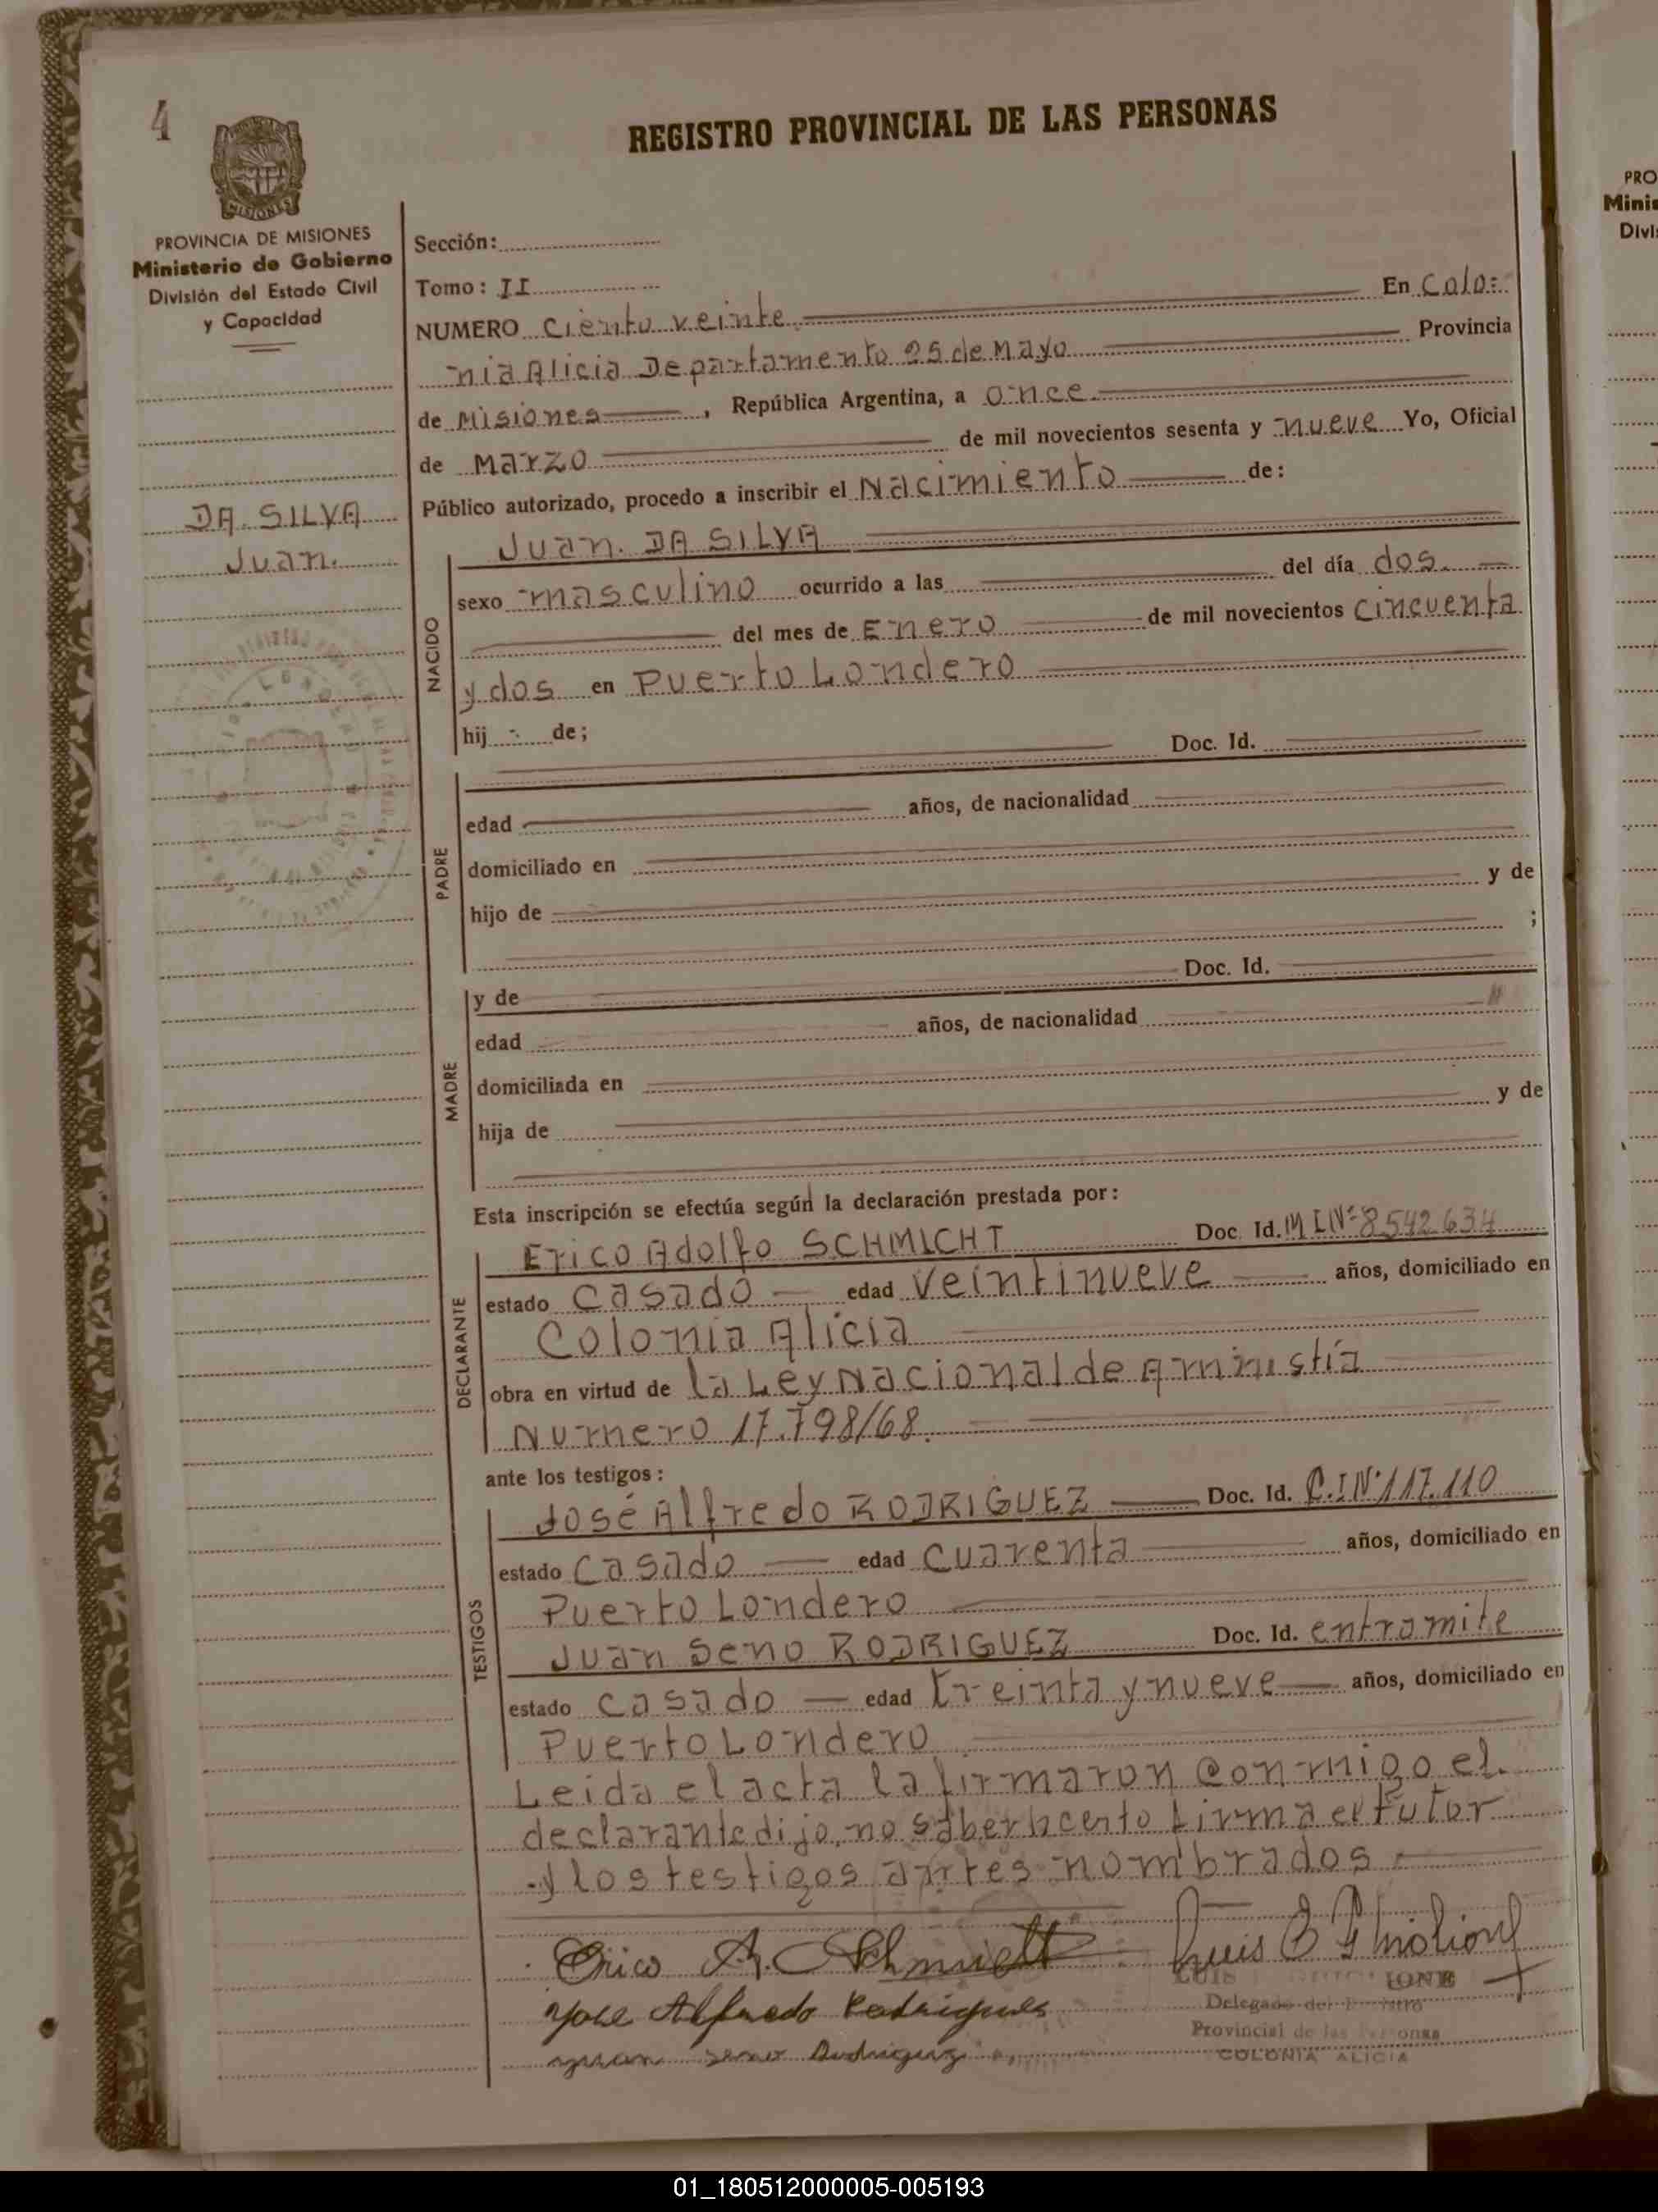 4
REGISTRO PROVINCIAL DE LAS PERSONAS
MISIONES
PROVINCIA DE MISIONES
Ministerio de Gobierno
División del Estado Civil
y Capacidad
DA SILVA
Juan.
Sección:
Tomo: II
NUMERO Ciento veinte En Colo=
nia Alicia Departamento 25 de Mayo Provincia
de Misiones, República Argentina, a once
de Marzo de mil novecientos sesenta y nueve Yo, Oficial
Público autorizado, procedo a inscribir el Nacimiento de:
NACIDO
Juan. DA SILVA
sexo masculino ocurrido a las del día dos.
del mes de Enero de mil novecientos cincuenta
y dos en Puerto Londero
hij - de;
PADRE
Doc. Id.
edad años, de nacionalidad
domiciliado en
hijo de y de
;
MADRE
y de Doc. Id.
edad años, de nacionalidad
domiciliada en
hija de y de
Esta inscripción se efectúa según la declaración prestada por:
DECLARANTE
Erico Adolfo SCHMICHT Doc. Id. M I Nº 8542634
estado Casado edad veintinueve años, domiciliado en
Colonia Alicia
obra en virtud de la Ley Nacional de Amnistía
Numero 17.798/68.
ante los testigos:
TESTIGOS
José Alfredo RODRIGUEZ Doc. Id. C.I Nº 117.110
estado Casado edad Cuarenta años, domiciliado en
Puerto Londero
Juan Seno RODRIGUEZ Doc. Id. en tramite
estado casado edad treinta y nueve años, domiciliado en
Puerto Londero
Leida el acta la firmaron conmigo el
declarante dijo no saber hcerto firma el tutor
y los testigos antes nombrados.
Erico A. Schmidt Luis
LUIS IONE
Jose Alfredo Rodrigues Delegado del
Provincial de las
Juan Seno COLONIA ALICIA
PRO
Minis
Divis
01_180512000005-005193